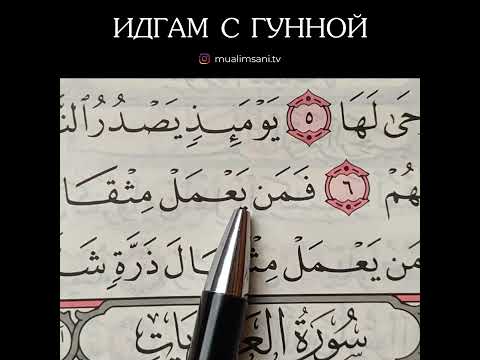 ИДГАМ С ГУННОЙ
mualimsani.tv
حَىٰ لَهَا ٥ يَوْمَئِذٍ يَصْدُرُ ٱلنَّ
هُمْ ٦ فَمَن يَعْمَلْ مِثْقَا
مَن يَعْمَلْ ذَرَّةٍ شَ
سُورَةُ